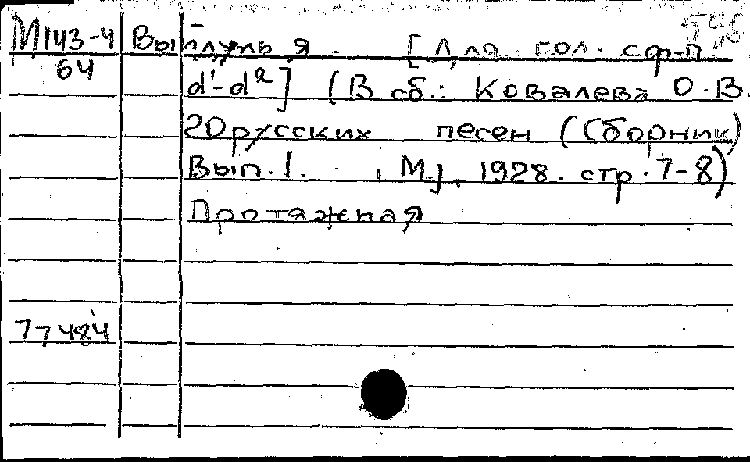 М143-4 Выплуль я. [Для гол. с ф-п.
64 d¹-d²] (В сб.: Ковалева О.В.
20 русских песен (Сборник)
Вып. 1. , М., 1928. стр. 7-8)
Протяжная
77484